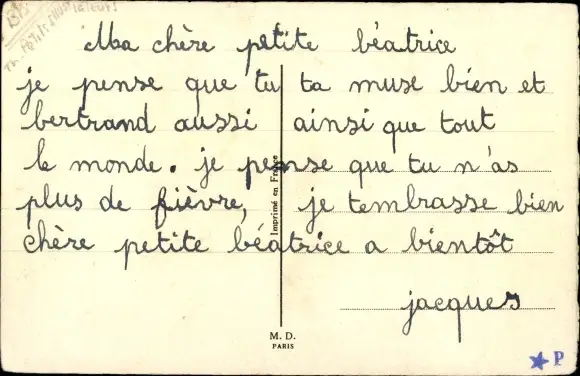 Ma chère petite béatrice
je pense que tu ta muse bien et
bertrand aussi ainsi que tout
le monde. je pense que tu n'as
plus de fièvre, je tembrasse bien
chère petite béatrice a bientôt
jacques
Imprimé en France
M. D.
PARIS
P